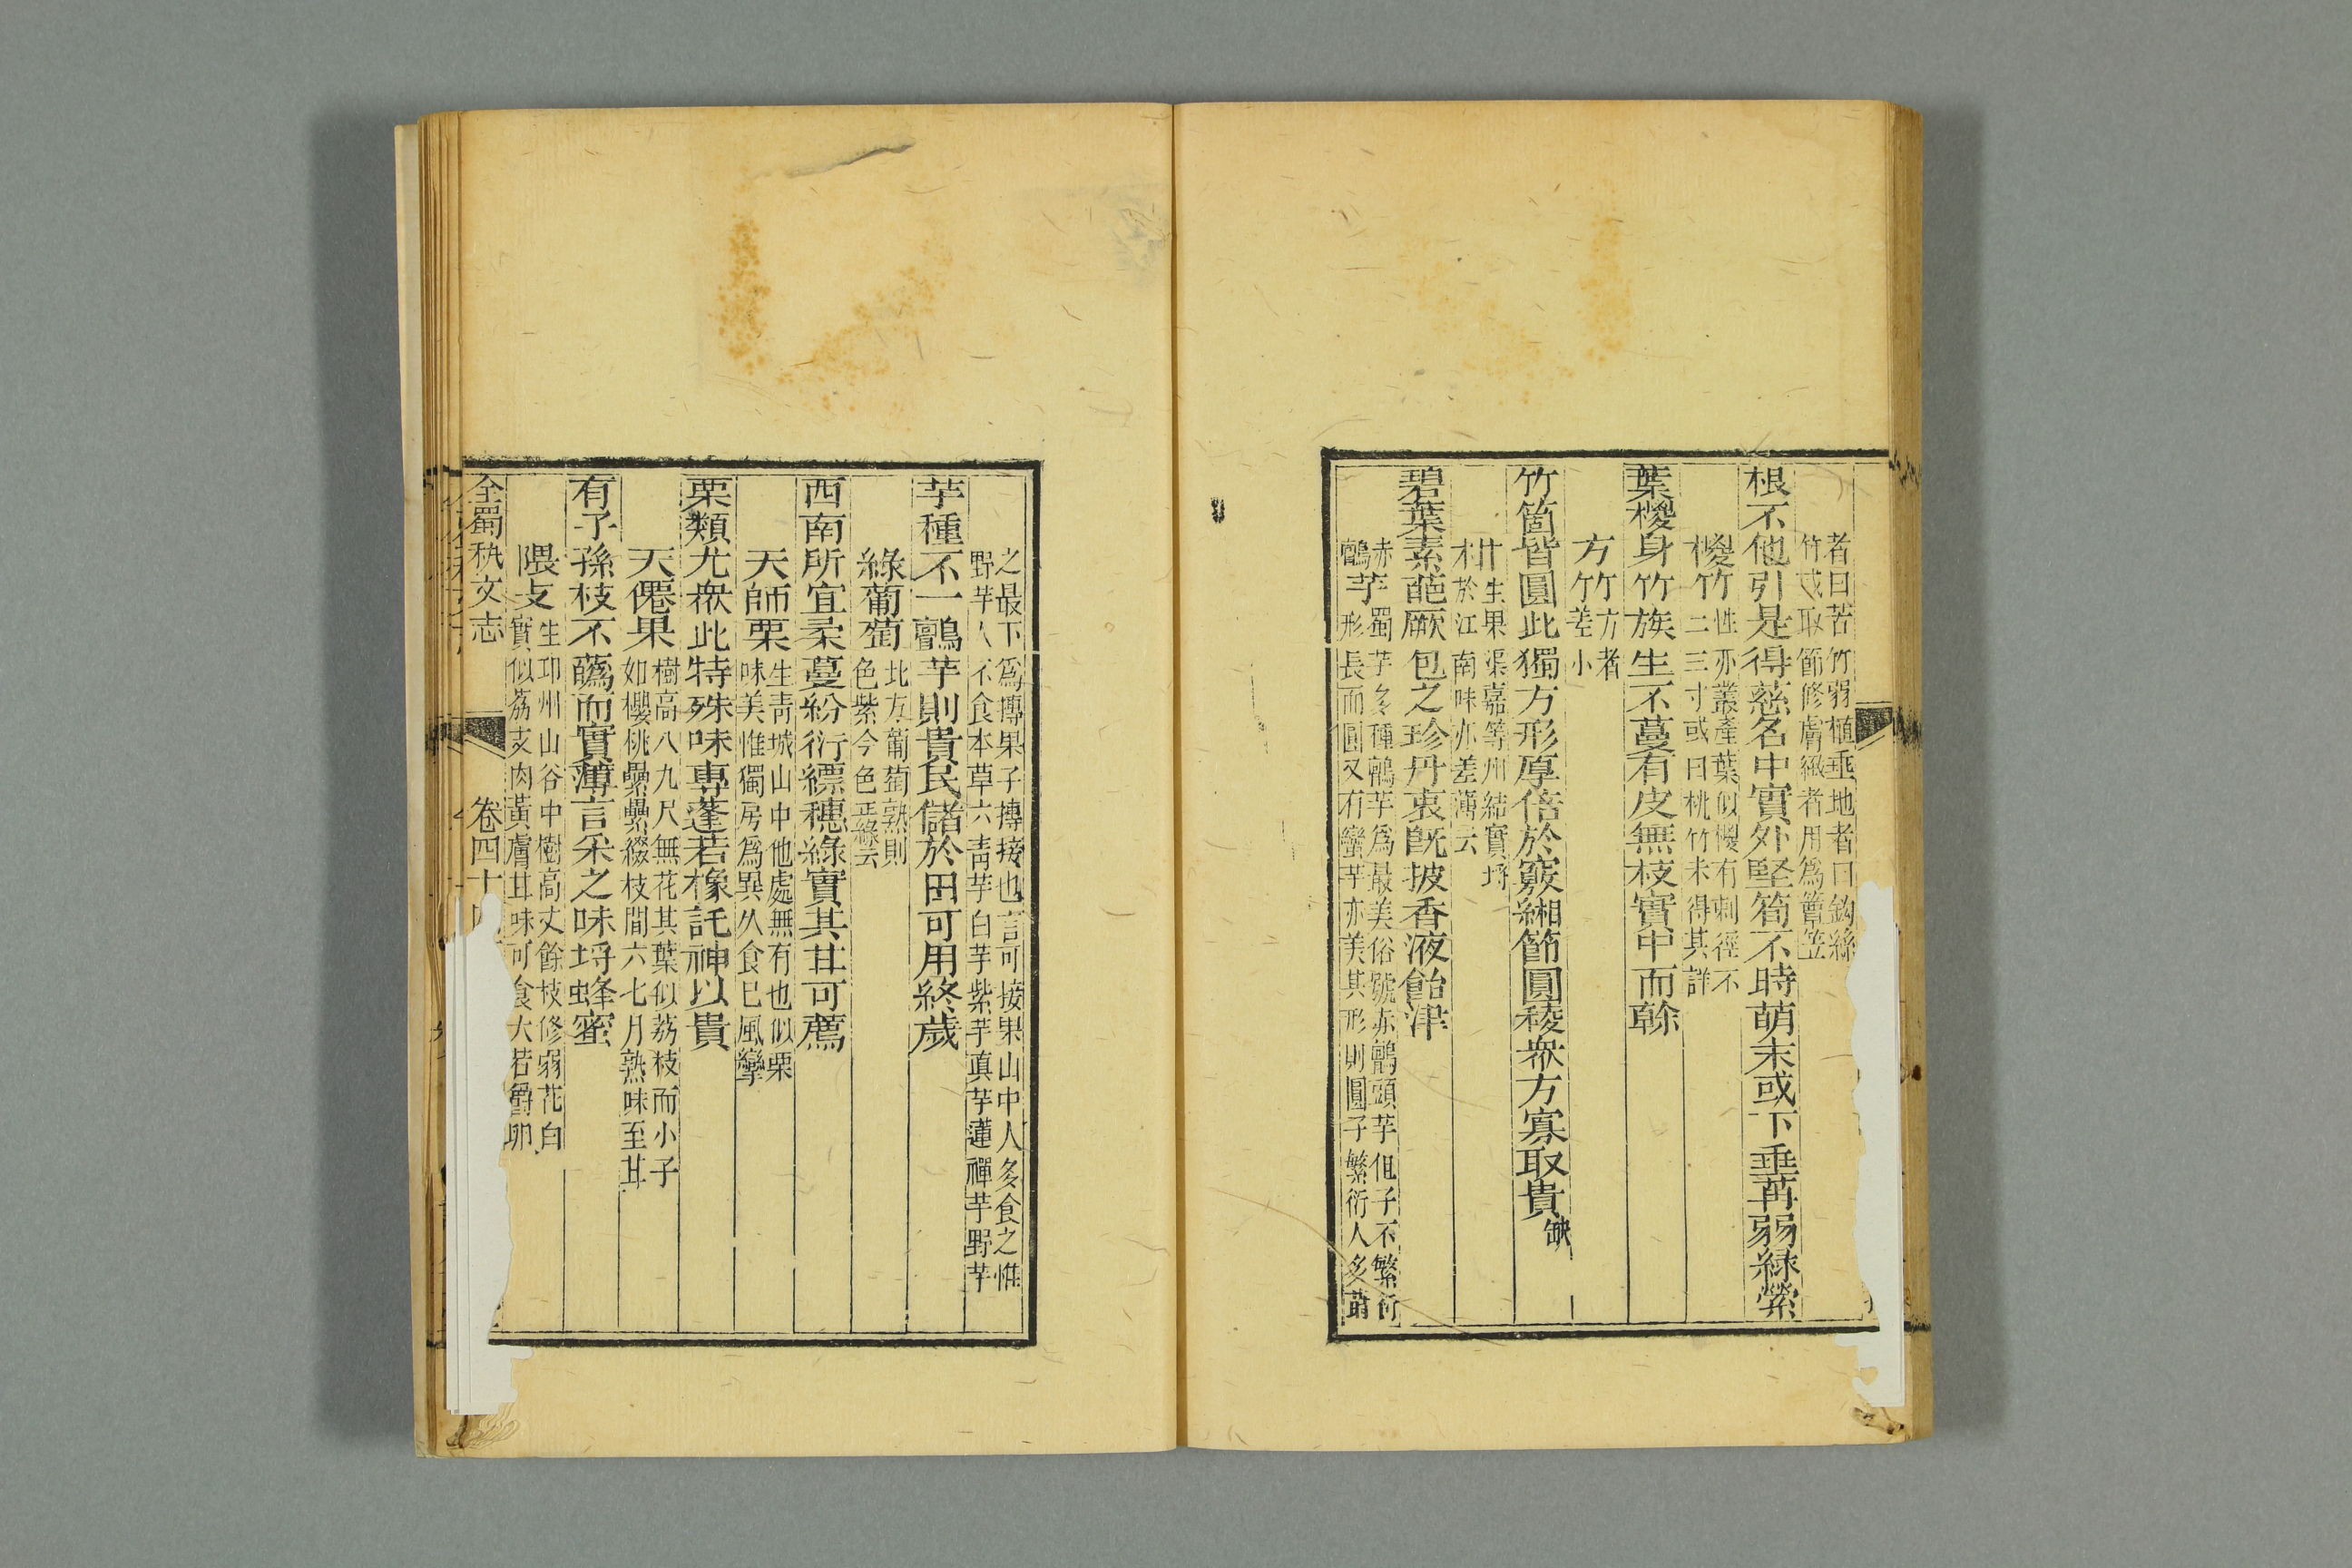 者曰苦竹弱植垂地者曰鈎絲
竹或取節修膚緻者用爲簟笠
根不他引是得慈名中實外堅筍不時萌末或下垂苒弱緑縈
椶竹性亦叢產葉似椶有刺徑不
二三寸或曰桃竹未得其詳
葉椶身竹族生不蔓有皮無枝實中而榦
方竹方者
差小
竹箇皆圓此獨方形厚倍於竅緗節圓稜衆方寡取貴缺
生果渠嘉等州結實埒
於江南味亦差薄云
碧葉素葩厥包之珍丹衷旣披香液飴津
赤鸇芋蜀芋多種鸇芋爲最美俗號赤鸇頭芋但子不繁衍
形長而圓又有蠻芋亦美其形則圓子繁衍人多蒔
之最下爲摶果子摶接也言可接果山中人多食之惟
野芋人不食本草六靑芋白芋紫芋真芋蓮禪芋野芋
芋種不一鸇芋則貴民儲於田可用終歲
綠葡萄北方葡萄熟則
色紫今色正綠云
西南所宜柔蔓紛衍縹穗綠實其甘可薦
天師栗生靑城山中他處無有也似栗
味美惟獨房爲異久食已風攣
栗類尤衆此特殊味專蓬若橡託神以貴
天僊果樹高八九尺無花其葉似荔枝而小子
如櫻桃纍纍綴枝間六七月熟味至甘
有子孫枝不蘤而實薄言采之味埒蜂蜜
隈支生邛州山谷中樹高丈餘枝修弱花白
實似荔支肉黃膚甘味可食大若爵卵
全蜀秇文志 卷四十